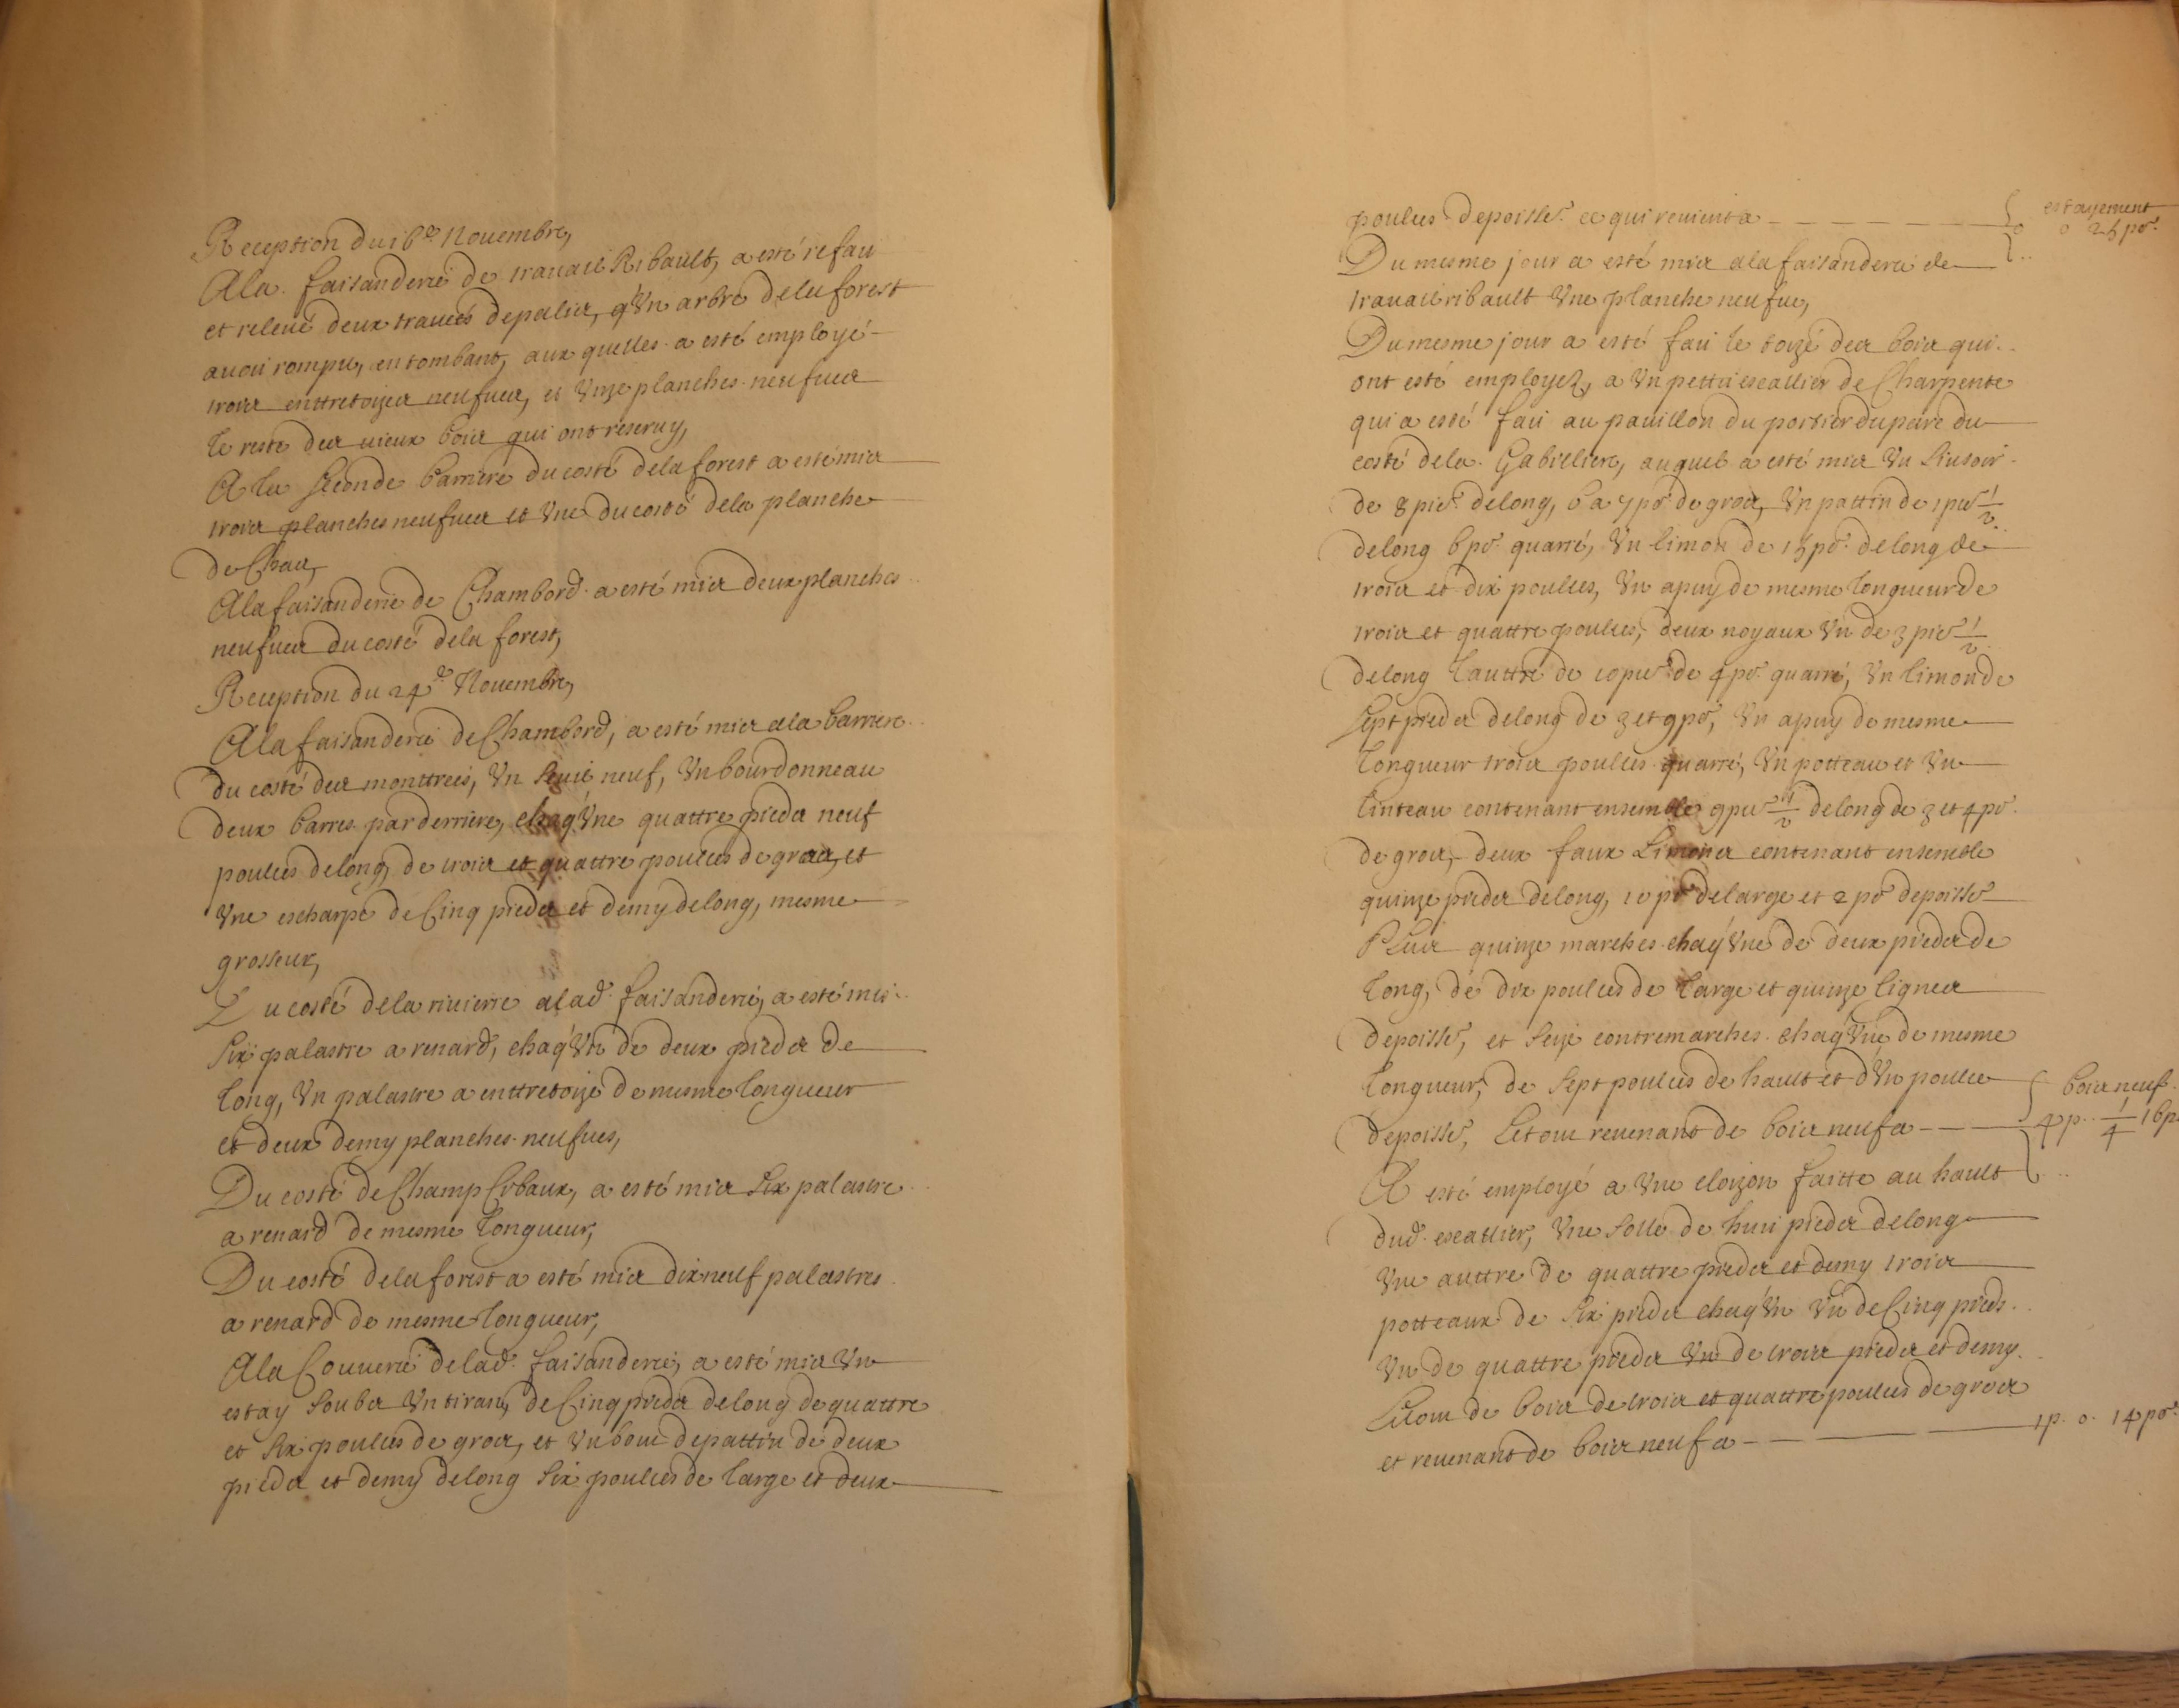 Reception du 16e Novembre,
A la faisanderie de travail Ribault, a esté refait
et relevé deux travées de palis, q'un arbre de la forest
avoit rompu, en tombant, aux quelles a esté employé
trois enttretoizes neufues, et unze planches neufues
le reste des vieux bois qui ont reservy,
A la seconde barriere du costé de la forest a esté mis
trois planches neufues et une du costé de la planche
de Chat,
A la faisanderie de Chambord a esté mis deux planches
neufues du costé de la forest,
Reception du 24e Novembre,
A la faisanderie de Chambord, a esté mis a la barriere
du costé des monttrées, un seuil neuf, un bourdonneau
deux barres par derriere, chaq'une quattre pieds neuf
poulces de long, de trois et quattre poulces de gros, et
une escharpe de Cinq pieds et demy de long, mesme
grosseur,
Du costé de la riviere a lad. faisanderie, a esté mis
six palastre a renard, chaq'un de deux pieds de
long, un palastre a enttretoize de mesme longueur
et deux demy planches neufues,
Du costé de Champ Cibaux, a esté mis six palastre
a renard de mesme longueur,
Du costé de la forest a esté mis dix neuf palastres
a renard de mesme longueur,
A la Couverie de lad. faisanderie, a esté mis un
estay soubs un tirant, de Cinq pieds de long de quattre
et six poulces de gros, et un bout de pattin de deux
pieds et demy de long six poulces de large et deux
poulces d'epoisser. ce qui revient a
estayement
0 0 25 po.
Du mesme jour a esté mis a la faisanderie de
travail ribault une planche neufue,
Du mesme jour a esté fait le toizé des bois qui
ont esté employez, a un pettit escallier de Charpente
qui a esté fait au pavillon du portier du parc du
costé de la Gabilliere, auquel a esté mis un
de 8 pie. de long, 6 a 7 po. de gros, un pattin de 1 pie 1/2
de long 6 po. quarré, un limon de 15 po. de long de
trois et dix poulces, un apuy de mesme longueur de
trois et quattre poulces, deux noyaux un de 3 pie 1/2
de long l'auttre de 10 pie. de 4 po. quarré, un limon de
sept pieds de long de 3 et 9 po., un apuy de mesme
longueur trois poulces quarré, un potteau et un
linteau contenant ensemble 9 pie 1/2 de long de 3 et 4 po.
de gros, deux faux Limons contenant ensemble
quinze pieds de long, 10 po de large et 2 po d'epoisser
Plus quinze marches chaq'une de deux pieds de
long, de dix poulces de large et quinze lignes
d'epoisser, et seize contremarches chaq'une de mesme
longueur, de sept poulces de hault et d'un poulce
d'epoisser, Le tout revenant de bois neuf a
bois neuf
4 p. 1/4 16 p
A esté employé a une cloizon faitte au hault
dud. escallier, une solle de huit pieds de long
une auttre de quattre pieds et demy trois
potteaux de six pieds chaq'un un de Cinq pieds
un de quattre pieds un de trois pieds et demy
Le tout de bois de trois et quattre poulces de gros
et revenant de bois neuf a 1 p. 0. 14 po.